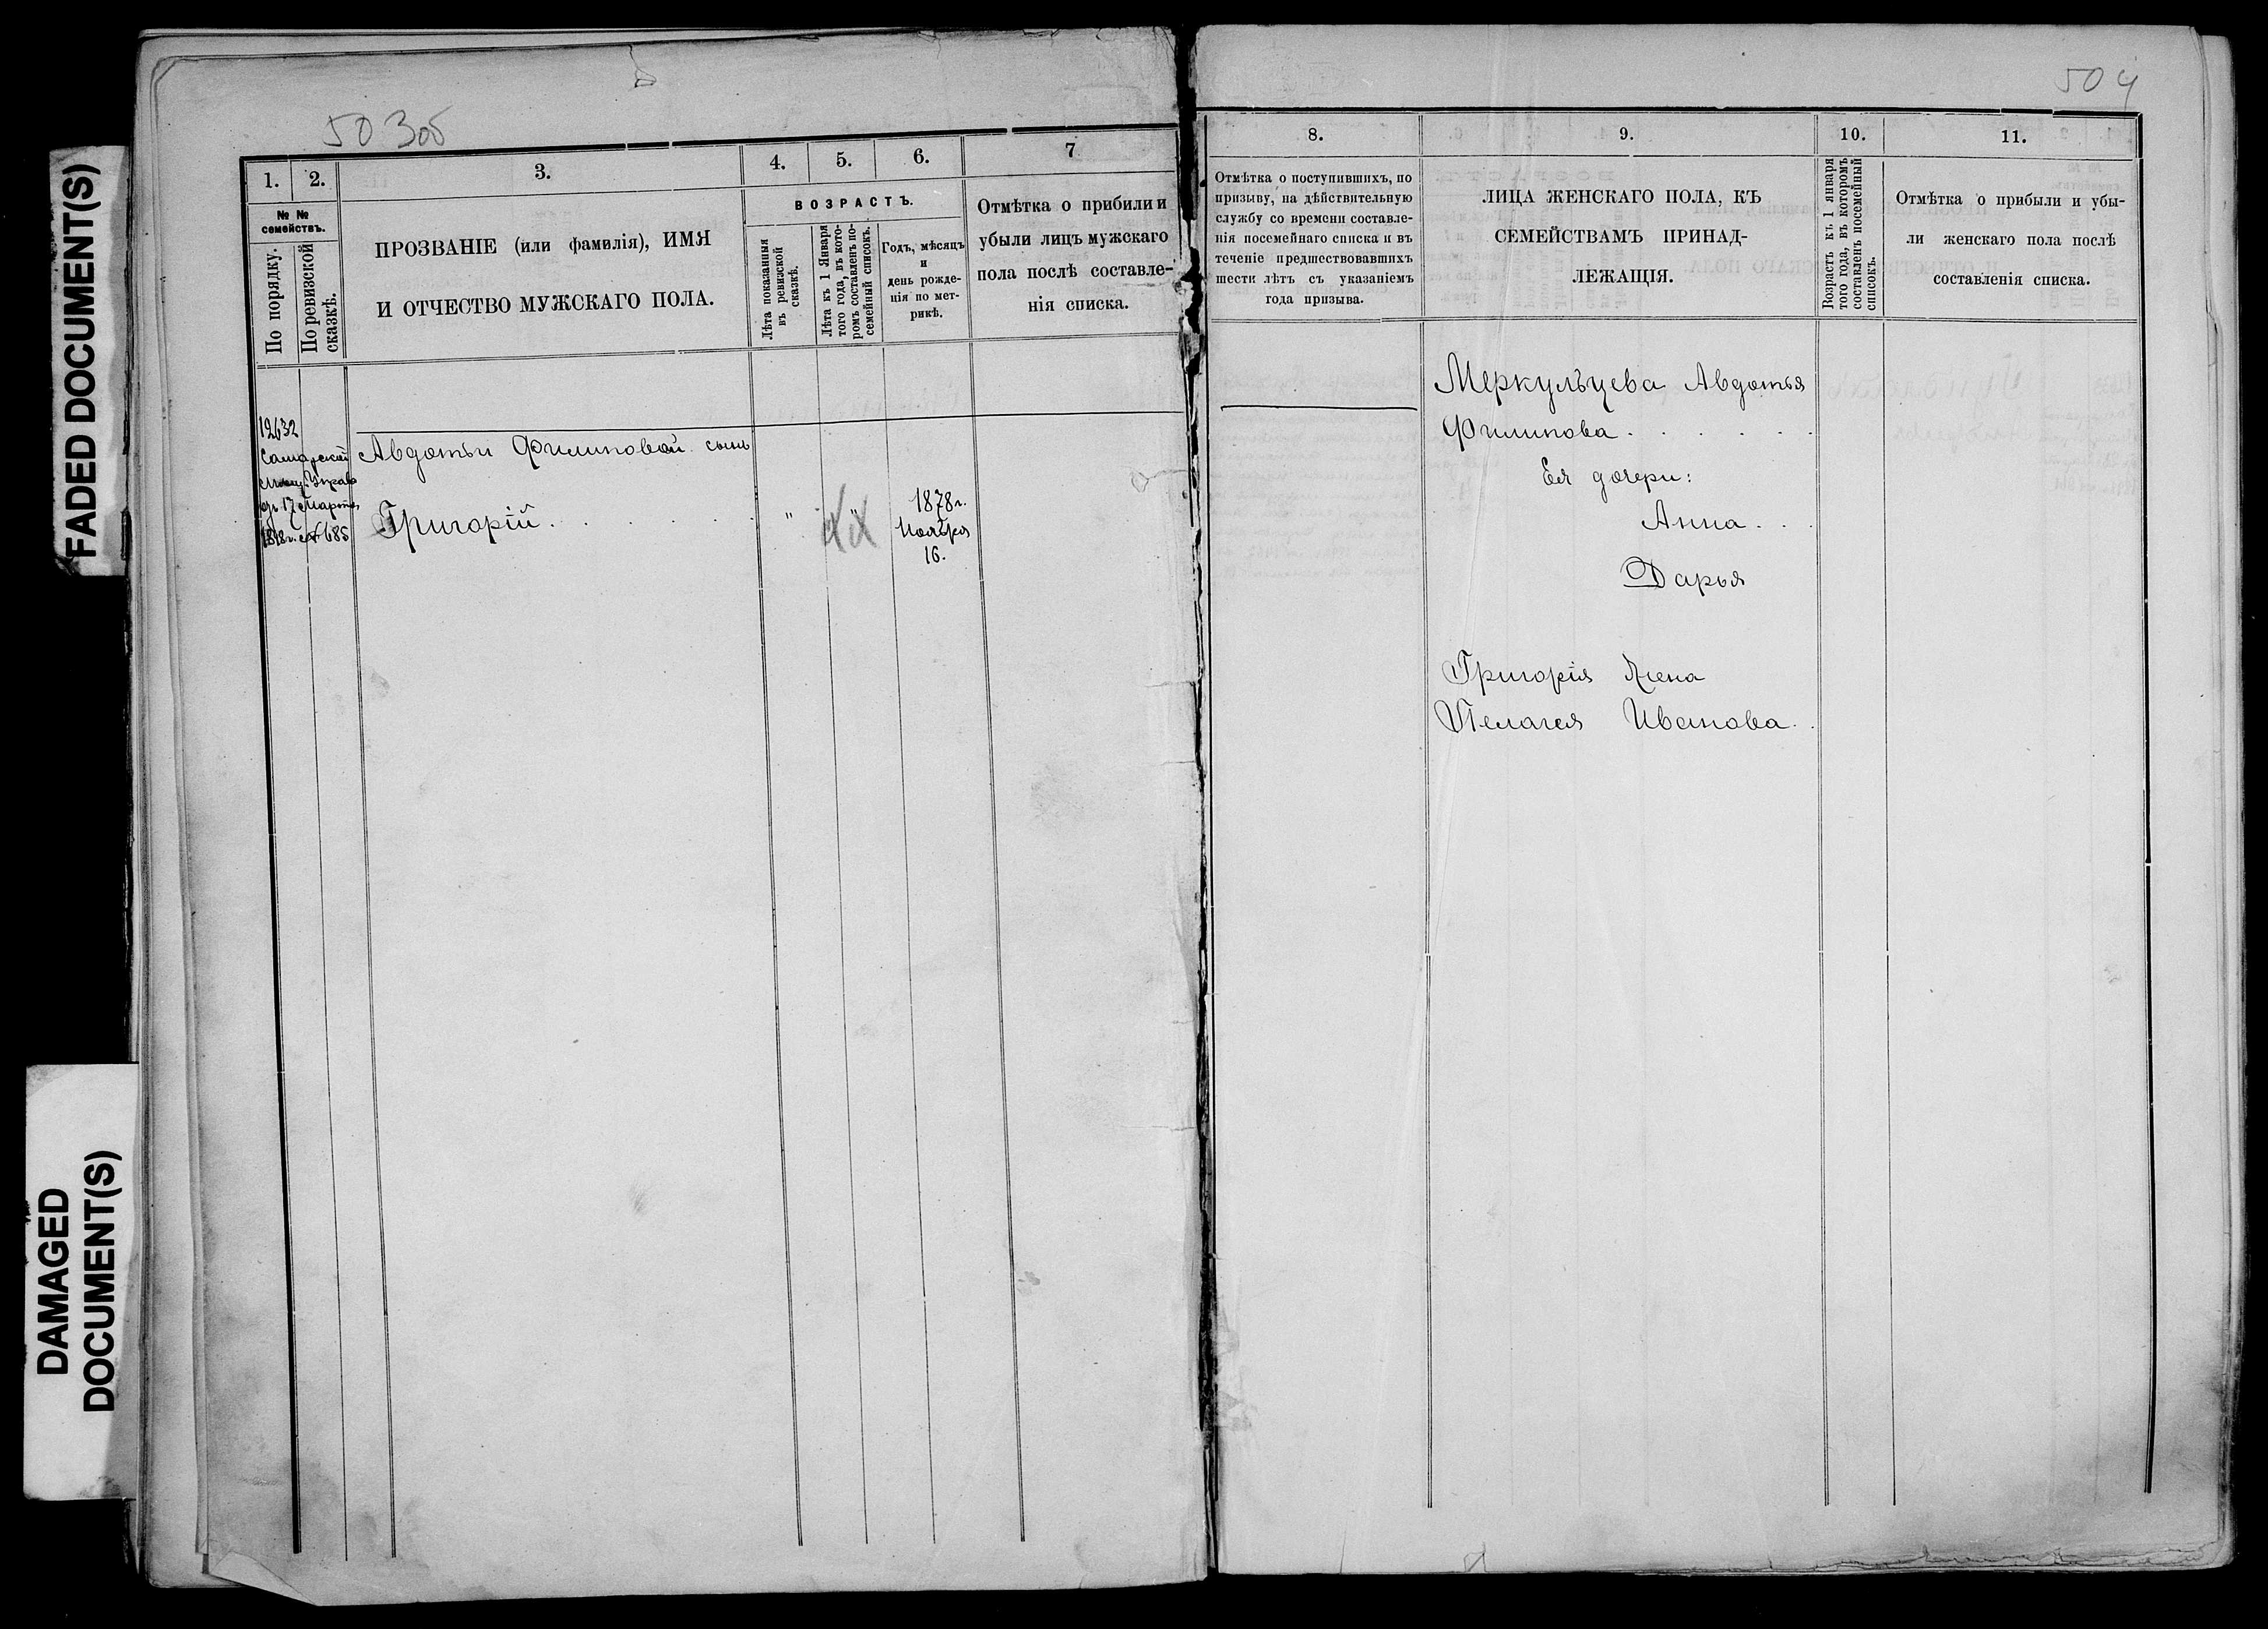 FADED DOCUMENT(S)
DAMAGED
DOCUMENT(S)
503об
1.
2.
3.
4.
5.
6.
7
№ №
семействъ.
По порядку.
По ревизской
сказкѣ.
ПРОЗВАНІЕ (или фамилія), ИМЯ
И ОТЧЕСТВО МУЖСКАГО ПОЛА.
ВОЗРАСТЪ.
Лѣта показанныя
въ ревизской
сказкѣ.
Лѣта къ 1 Января
того года, въ кото-
ромъ составленъ по-
семейный списокъ.
Годъ, мѣсяцъ
и
день рожде-
нія по мет-
рикѣ.
Отмѣтка о прибыли и
убыли лицъ мужскаго
пола послѣ составле-
нія списка.
12632
Самарской
17 Марта
685
Авдотьи Филиповой сынъ
Григорій . . . . . .
"
"
1878 г.
Ноября
16.
504
8.
9.
10.
11.
Отмѣтка о поступившихъ, по
призыву, на дѣйствительную
службу со времени составле-
нія посемейнаго списка и въ
теченіе предшествовавшихъ
шести лѣтъ съ указаніемъ
года призыва.
ЛИЦА ЖЕНСКАГО ПОЛА, КЪ
СЕМЕЙСТВАМЪ ПРИНАД-
ЛЕЖАЩІЯ.
Возрастъ къ 1 января
того года, въ которомъ
составленъ посемейный
списокъ.
Отмѣтка о прибыли и убы-
ли женскаго пола послѣ
составленія списка.
Меркульцева Авдотья
Филипова . . . . . .
Ея дочери:
Анна . . .
Дарья
Григорія жена
Пелагея Иванова . .